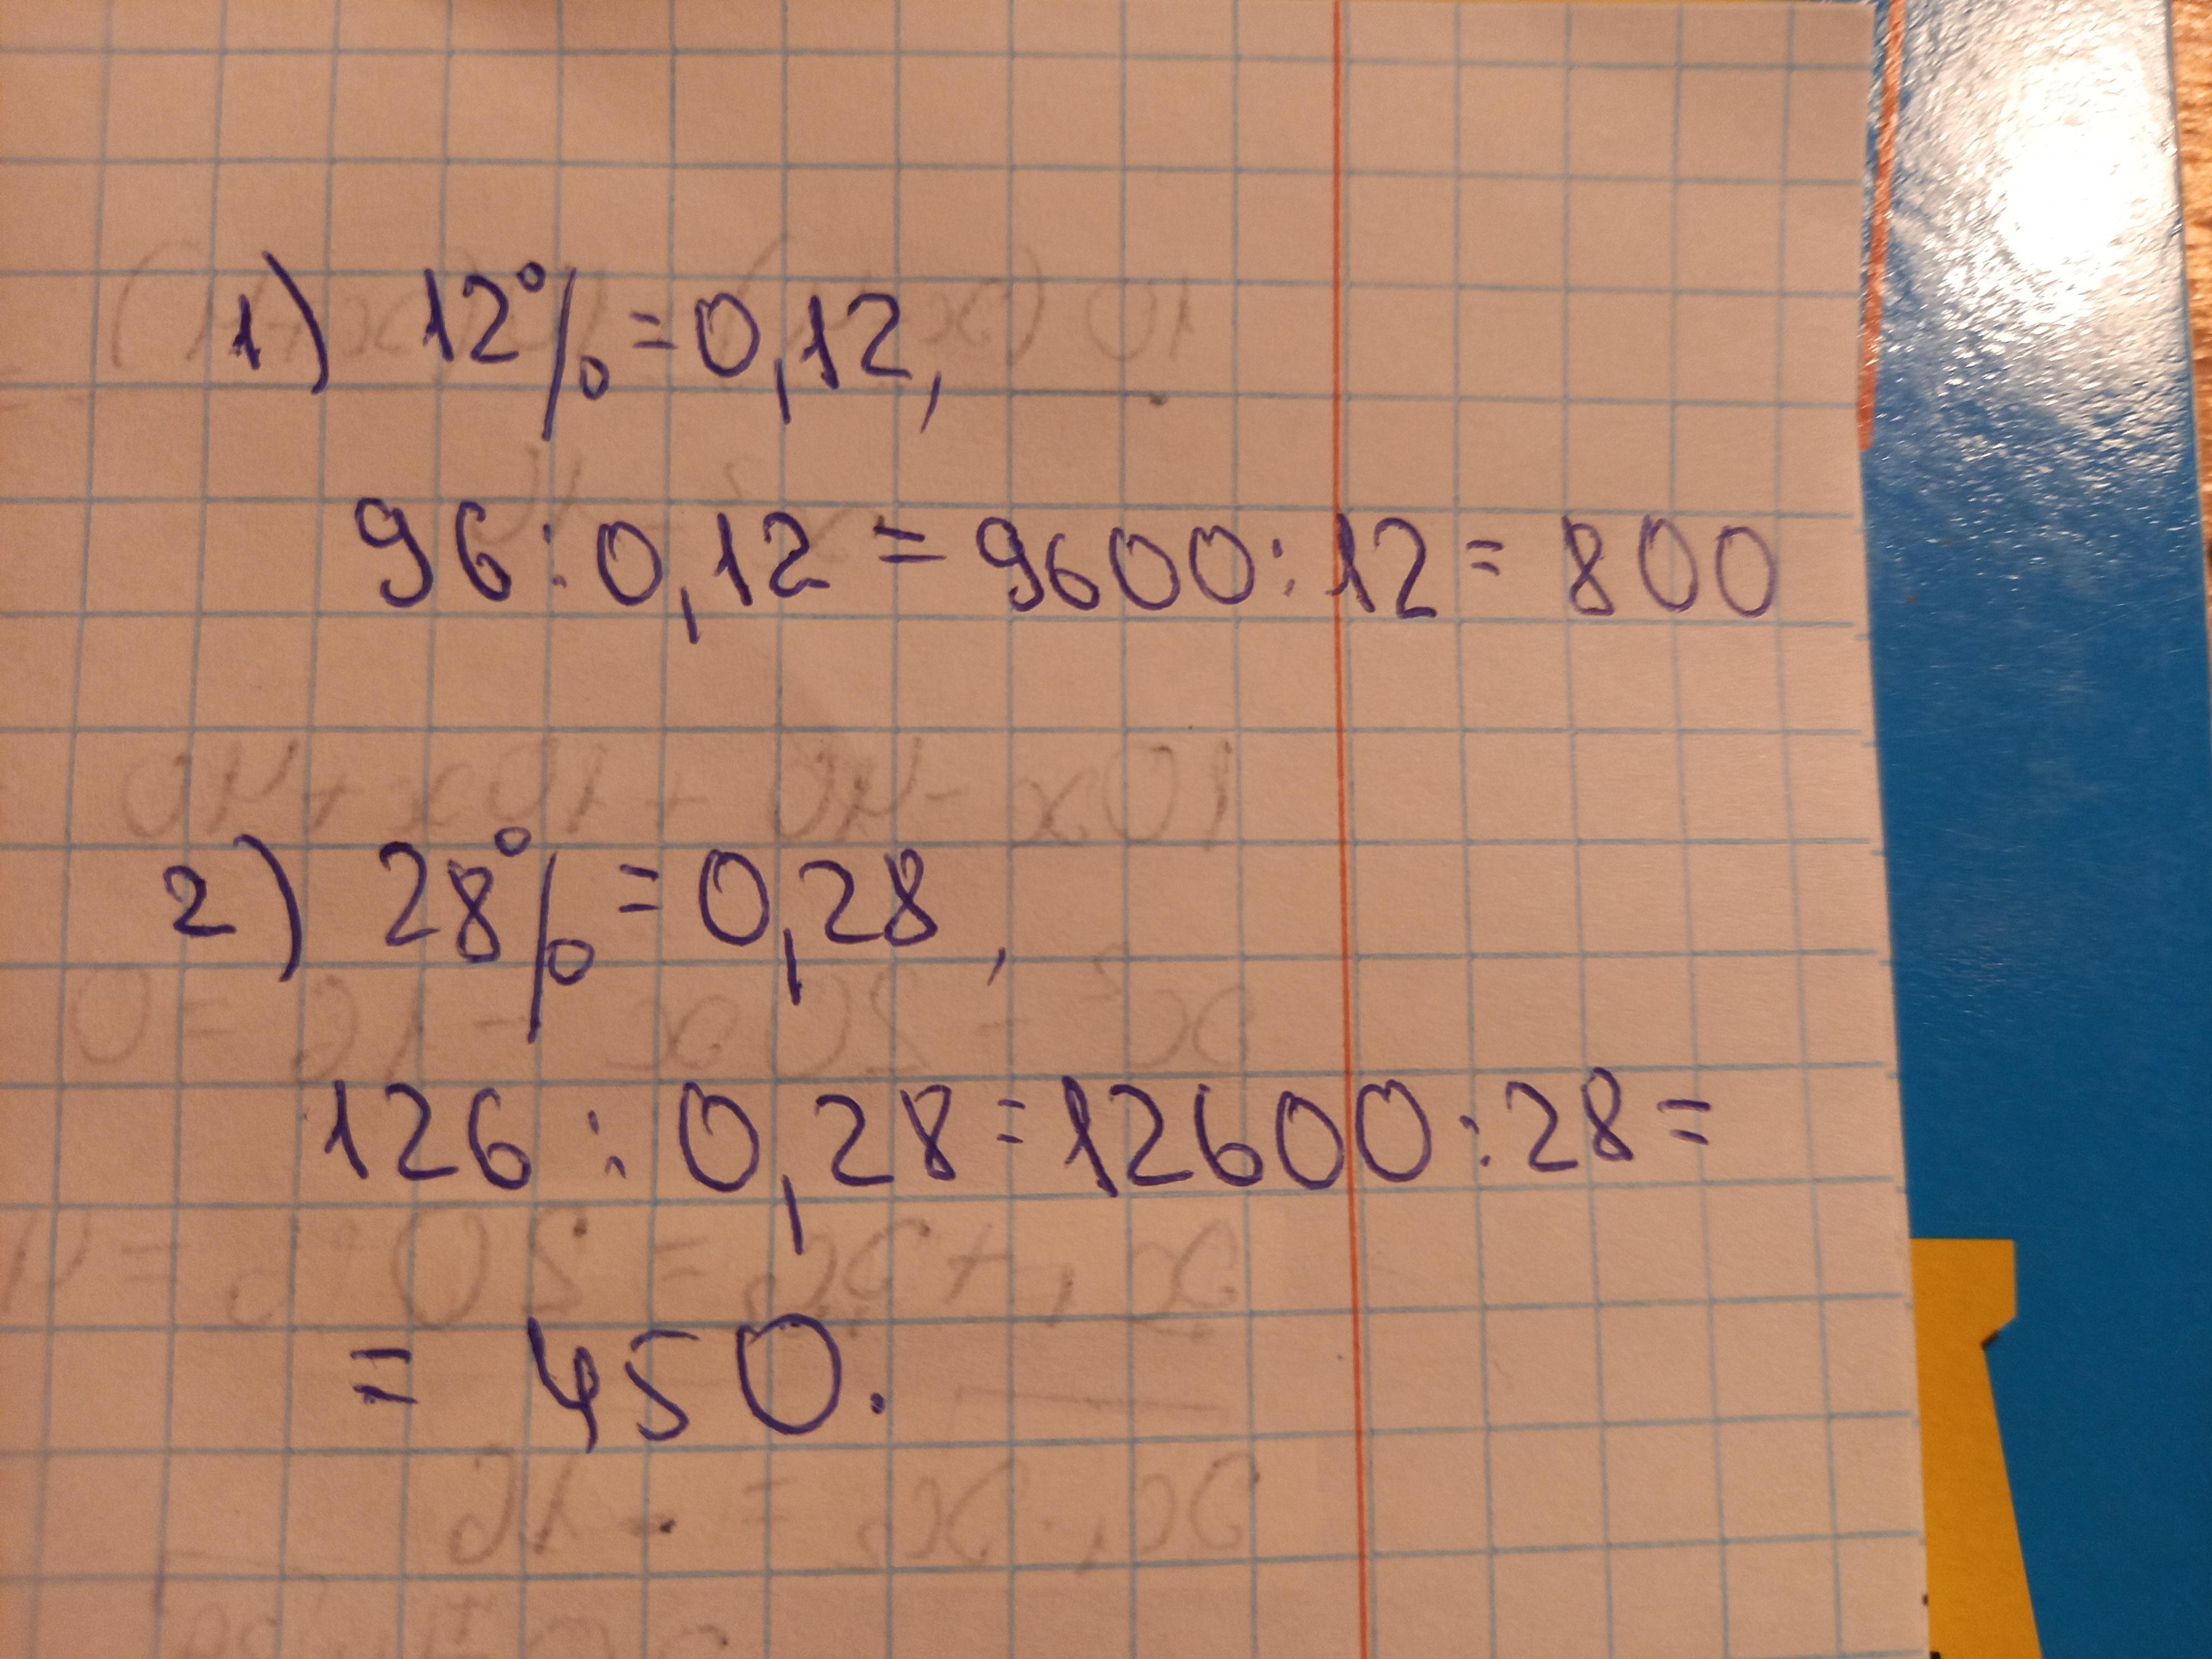 1) 12% = 0,12,
96 : 0,12 = 9600 : 12 = 800
2) 28% = 0,28,
126 : 0,28 = 12600 : 28 =
= 450.